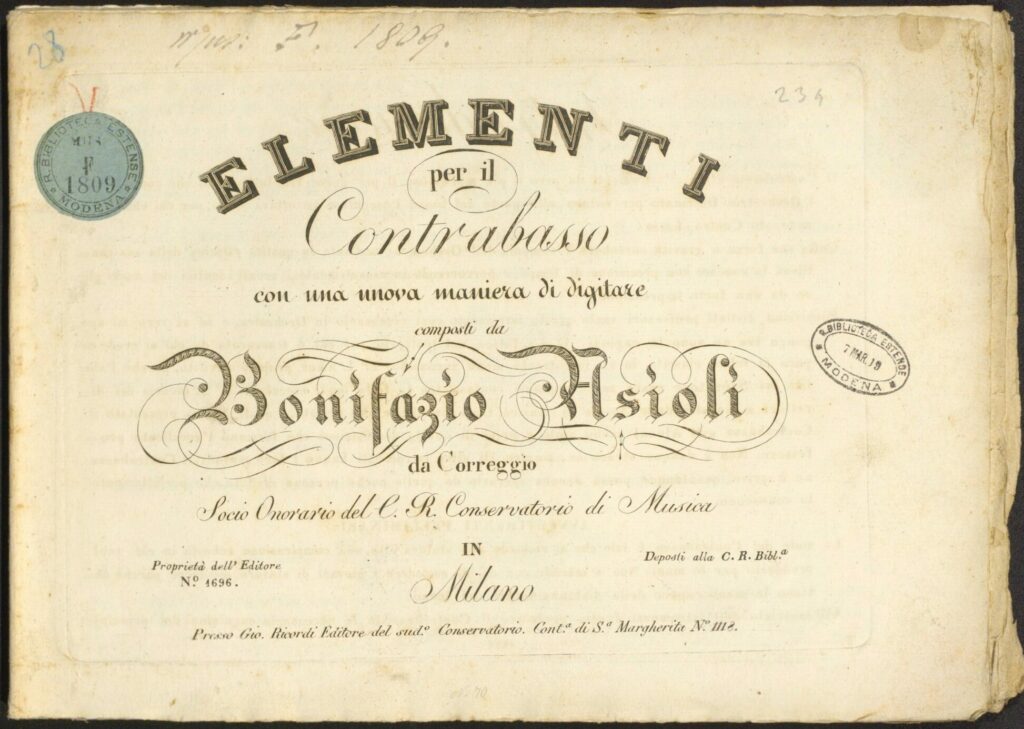 28
mus: F. 1809.
239
R. BIBLIOTECA ESTENSE
MUS
F
1809
MODENA
ELEMENTI
per il
Contrabasso
con una nuova maniera di digitare
composti da
Bonifazio Asioli
da Correggio
Socio Onorario del C. R. Conservatorio di Musica
IN
Milano
R. BIBLIOTECA ESTENSE
7 MAR. 19
MODENA
Proprietà dell' Editore
N.º 1696.
Deposti alla C. R. Bibl.ª
Presso Gio. Ricordi Editore del sud.º Conservatorio. Cont.ª di S.ª Margherita N.º 1118.